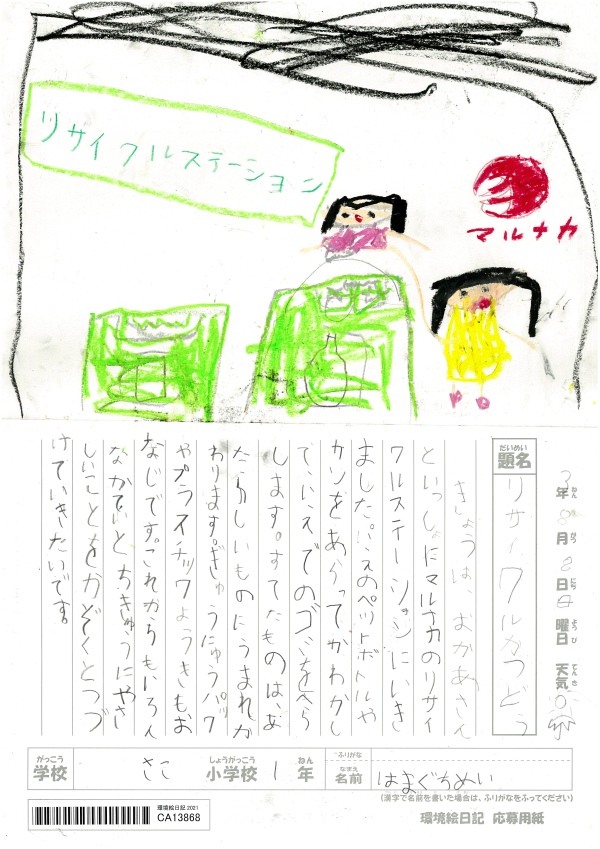 リサイクルステーション
マルナカ
3年8月8日日曜日 天気
ねん がつ にち ようび てんき
だいめい
題名
リサイクルかつどう
きょうは、おかあさん
といっしょにマルナカのリサイ
クルステーションにいき
ました。いえのペットボトルや
カンをあらってかわかし
て、いえでのゴミをへら
します。すてたものは、あ
たらしいものにうまれか
わります。ぎゅうにゅうパック
やプラスチックようきもお
なじです。これからもいろん
なかたちでちきゅうにやさ
しいことをかぞくとつづ
けていきたいです。
がっこう
学校
さこ
しょうがっこう
小学校
1
ねん
年
ふりがな
なまえ
名前
はまぐちめい
(漢字で名前を書いた場合は、ふりがなをふってください)
環境絵日記 2021
CA13868
環境絵日記 応募用紙